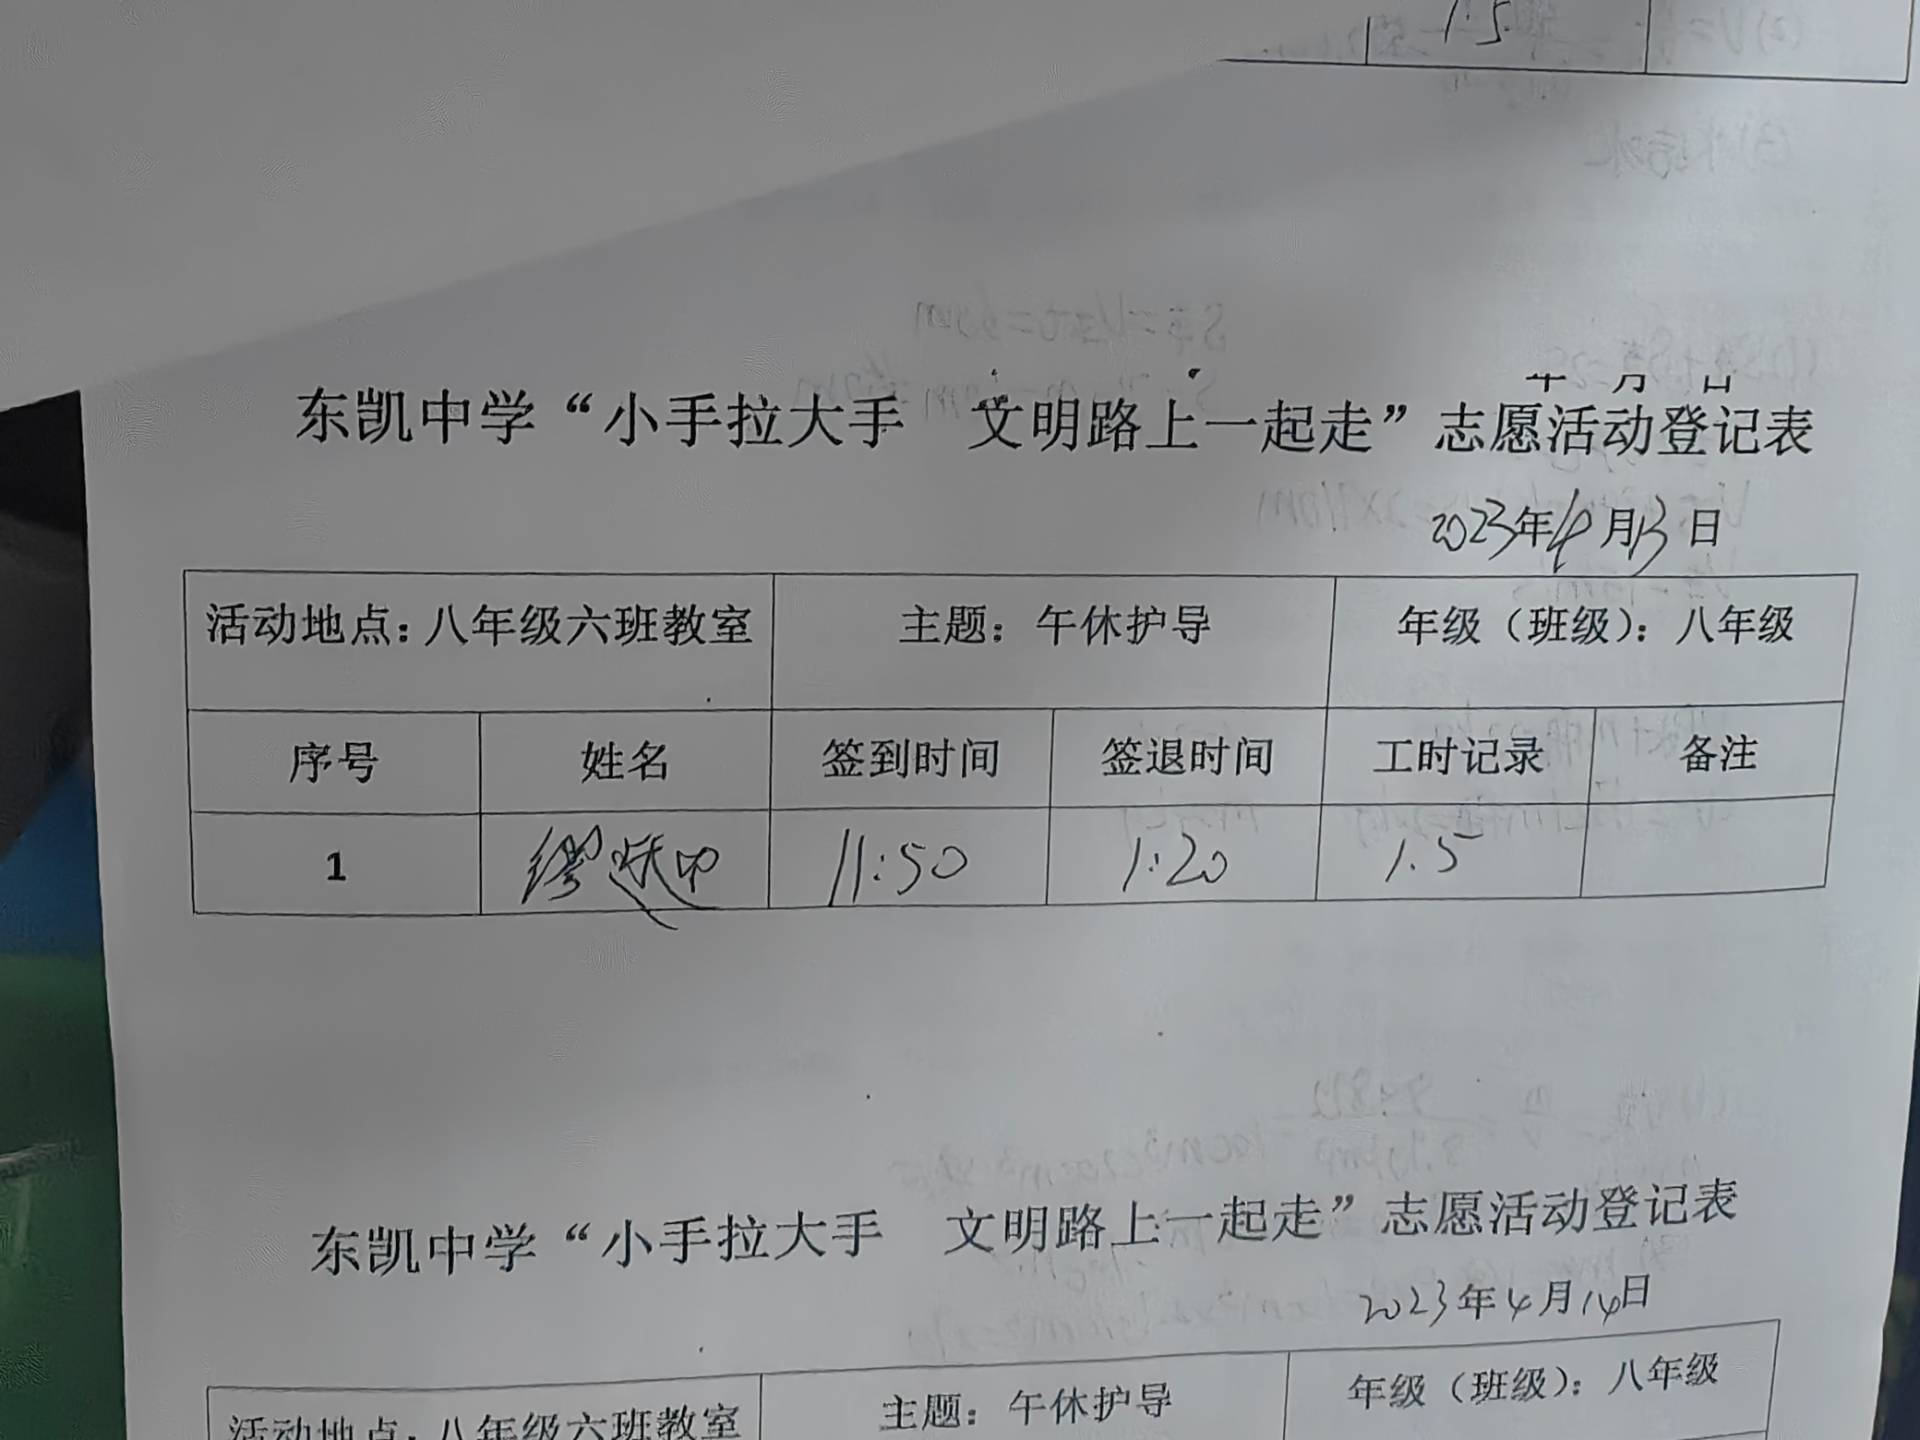 1.5
年 月 日
东凯中学“小手拉大手 文明路上一起走”志愿活动登记表
2023年4月13日
活动地点：八年级六班教室 主题：午休护导 年级（班级）：八年级
序号 姓名 签到时间 签退时间 工时记录 备注
1 11:50 1:20 1.5
东凯中学“小手拉大手 文明路上一起走”志愿活动登记表
2023年4月14日
活动地点：八年级六班教室 主题：午休护导 年级（班级）：八年级